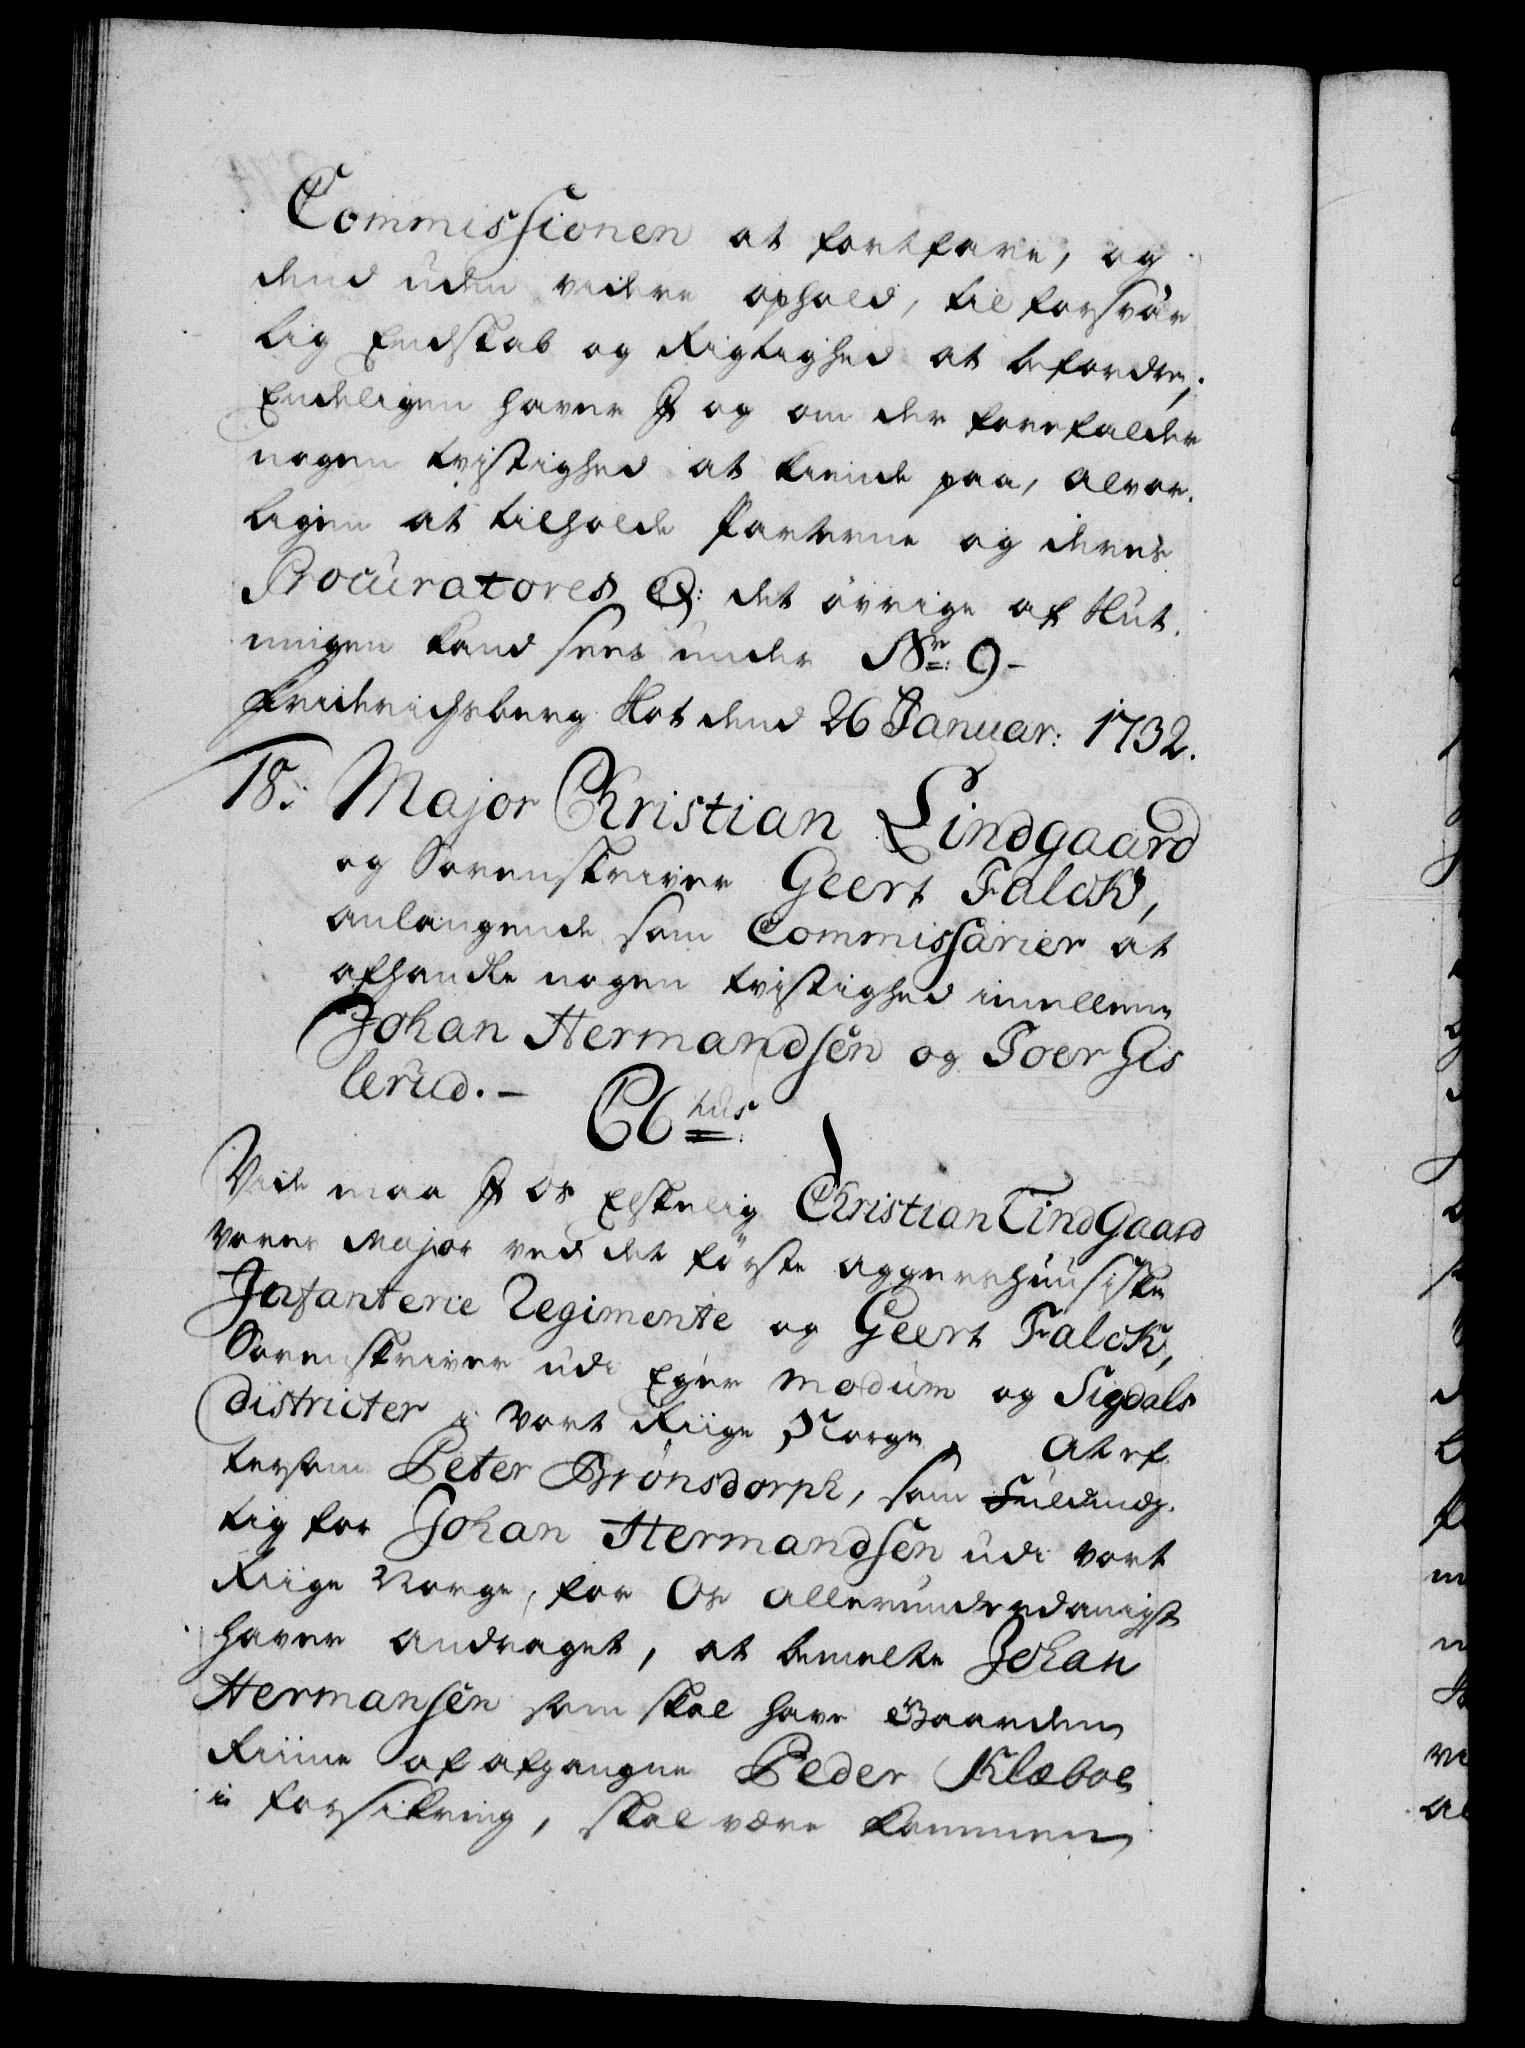 Commissionen at fortfare, og
dend uden videre ophold, til forsvar
lig Endskab og Rigtighed at befordre;
Endeligen haver I og om der forefalder
nogen tvistighed at kiende paa, alvor-
ligen at tilholde Parterne og deres
Procuratores &: det övrige af Slut-
ningen kand sees under No: 9-
Friderichsberg Slot dend 26 Januar: 1732.
18: Major Christian Lindgaard
og Sorenskriver Geert Falck,
anlangende som Commissarier at
afhandle nogen tvistighed imellem
Johan Hermandsen og Toer Gis
lerud.-
C6tus
Vide maa I os Elskelig Christian LindGaard
vores Major ved det förste aggerhuusiske
Infanterie Regimente og Geert Falck,
Sorenskriver udi Eger Modum og Sigdals
districter i Vort Riige Norge, At ef-
tersom Peter Brönsdorph, som Fuldmæg-
tig for Johan Hermandsen udi vort
Riige Norge, for Os allerunderdanigst
haver andraget, at bemelte Johan
Hermansen som skal have Gaarden
Riime af afgangne Peder Klæboe
i forsikring, skal være kommen